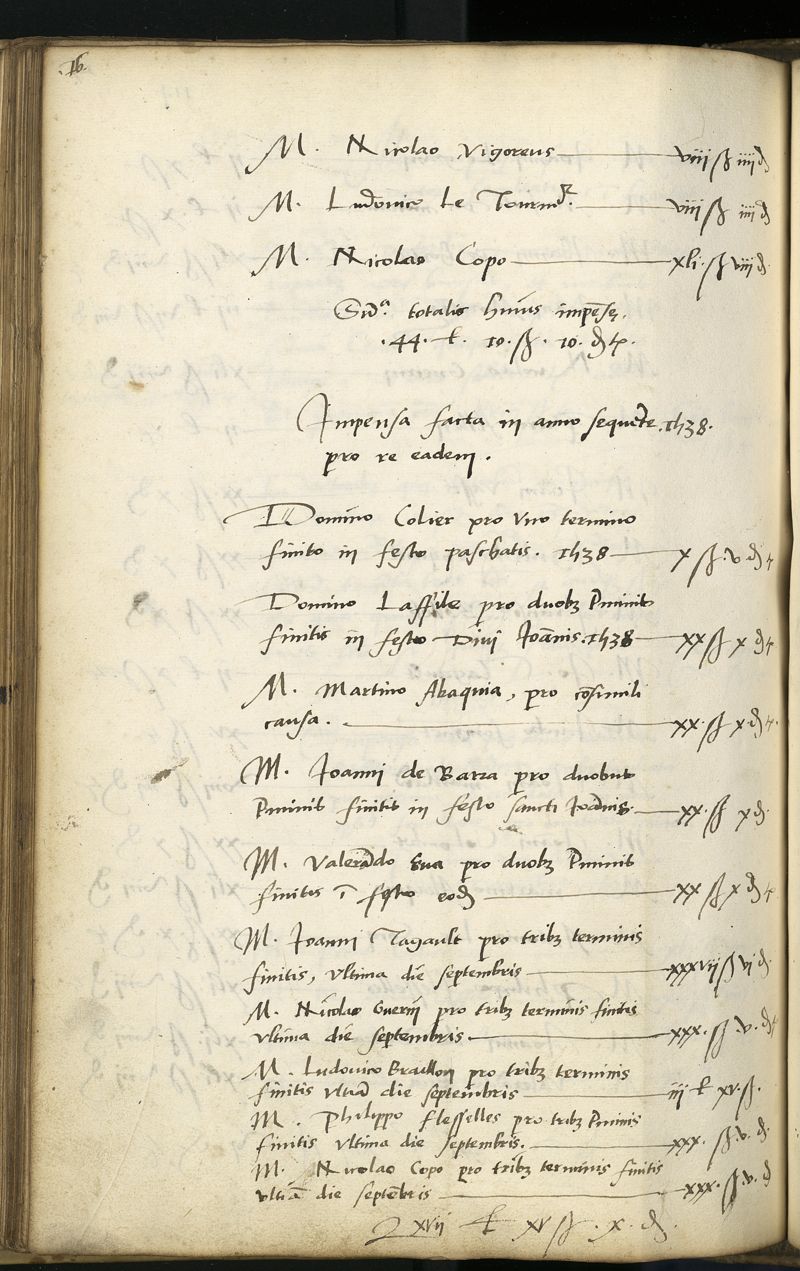 .16.
M. Nicolao Vigoreus viii ß iiii đ
M. Ludovico Le Tournr̄. viii ß iiii đ
M. Nicolao Copo xli. ß viii đ
Sūa. totalis huius impēsę.
.44. ł. 10. ß. 10. đ tˢ.
Impensa facta in anno sequēte. 1538.
pro re eadem.
Domino Colier pro uno termino
finito in festo paschatis. 1538 x ß. v. đ t
Domino Laffile pro duobꝫ tminis
finitis in festo Divi Joānis. 1538 xx ß x đ t
M. Martino Akaquia, pro cōsimili
causa. xx. ß x đ t.
M. Joanni de Barza pro duobus
tminis finitis in festo sancti Joānis. xx. ß x đ.
M. Valerādo Sua pro duobꝫ tminis
finitis ī festo eodē xx ß x đ t
M. Joanni Tagault pro tribꝫ terminis
finitis, ultima die septembris xxxvii ß vi đ
M. Nicolao Guerin pro tribꝫ terminis finitis
ultima die septembris xxx. ß. v. đ t
M. Ludovico Braillon pro tribꝫ terminis
finitis ultiā die septembris iii ł xv. ß.
M. Philippo Flesselles pro tribꝫ tminis
finitis ultima die septembris. xxx. ß. v. đ.
M. Nicolao Copo pro tribꝫ terminis finitis
ultiā die septēbris xxx. ß. v. đ
xvii ł xv ß. x. đ.